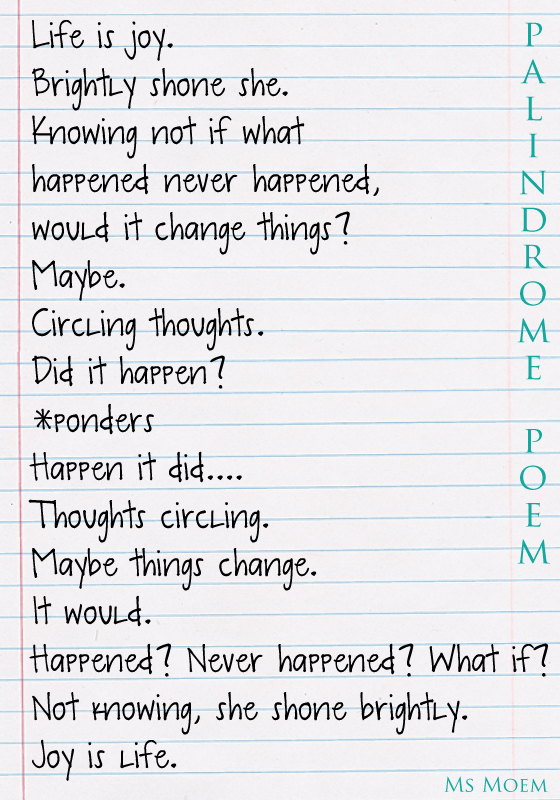 Life is joy.
Brightly shone she.
Knowing not if what
happened never happened,
would it change things?
Maybe.
Circling thoughts.
Did it happen?
*ponders
Happen it did....
Thoughts circling.
Maybe things change.
It would.
Happened? Never happened? What if?
Not knowing, she shone brightly.
Joy is life.
PALINDROME POEM
Ms Moem